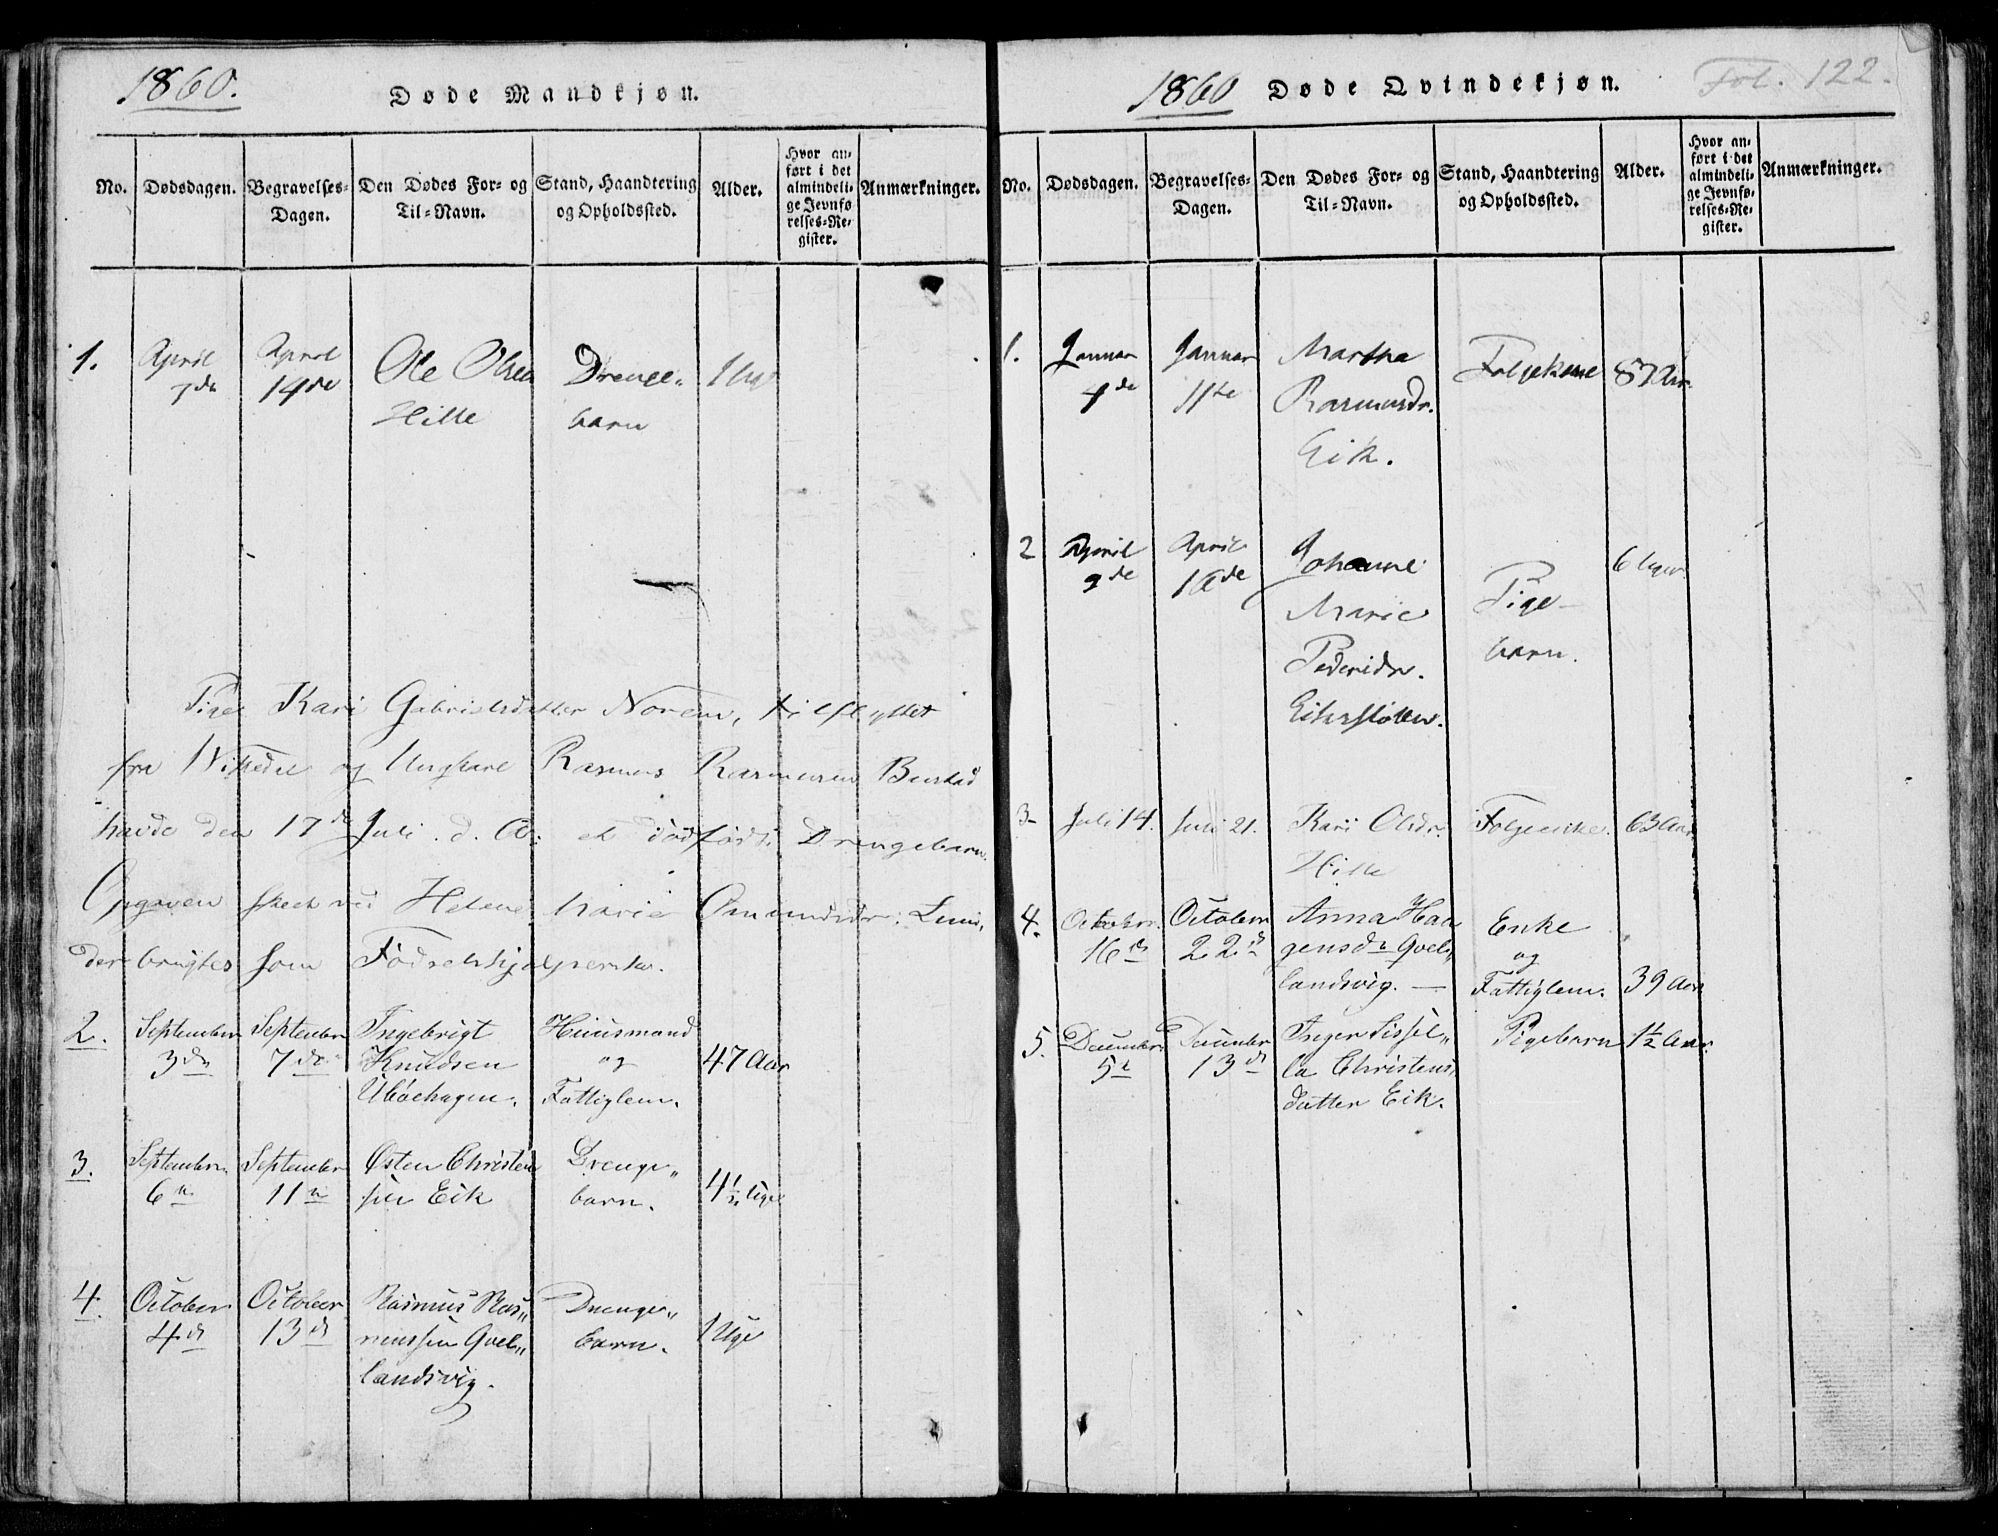 1860.
Døde Mandkjøn.
No.
Dødsdagen.
Begravelses-
Dagen.
Den Dødes For- og
Til-Navn.
Stand, Haandtering
og Opholdssted.
Alder.
Hvor an-
ført i det
almindeli-
ge Jevnfø-
relses-Re-
gister.
Anmærkninger.
1.
April
7de
April
14de
Ole Olsen
Hille
Drenge-
barn
1
Pige Kari Gabrielsdatter Norem, tilflyttet
fra og Ungkarl Rasmus Rasmussen Bustad
havde den 17de Juli d. A. et dødfødt Drengebarn.
Opgaven skeet ved Helene Marie Omundsdr. Lunde,
der brugtes som Fødselshjelperske.
2.
September
3de
September
7de
Ingebrigt
Knudsen
Ubøehagen.
Huusmand
og
Fattiglem.
47 Aar
3.
September
6te
September
11te
Østen Christen
sen Eik
Drenge„
barn.
4½ Uge
4.
October
4de
October
13de
Rasmus Ras„
mussen Qvel„
landsvig.
Drenge„
barn.
1 Uge
1860
Døde Qvindekjøn.
Fol. 122.
No.
Dødsdagen.
Begravelses-
Dagen.
Den Dødes For- og
Til-Navn.
Stand, Haandtering
og Opholdssted.
Alder.
Hvor an-
ført i det
almindeli-
ge Jevnfø-
relses-Re-
gister.
Anmærkninger.
1.
Januar
4de
Januar
11te
Martha
Rasmusdr.
Eik.
Folgekone
87 Aar.
2
April
9de
April
16de
Johanne
Marie
Pedersdr.
Eikesliden.
Pige-
barn.
6 Uger
3-
Juli 14.
Juli 21.
Kari Olsdr.
Hille
Folgeenke.
63 Aar
4.
October
16de
October
22de
Anna Haa
gensdr Qvel„
landsvig. —
Enke
og
Fattiglem.
39 Aar
5.
December
5te
December
13de
Inger Sissel„
la Christens
datter Eik.
Pigebarn
1½ Aar.